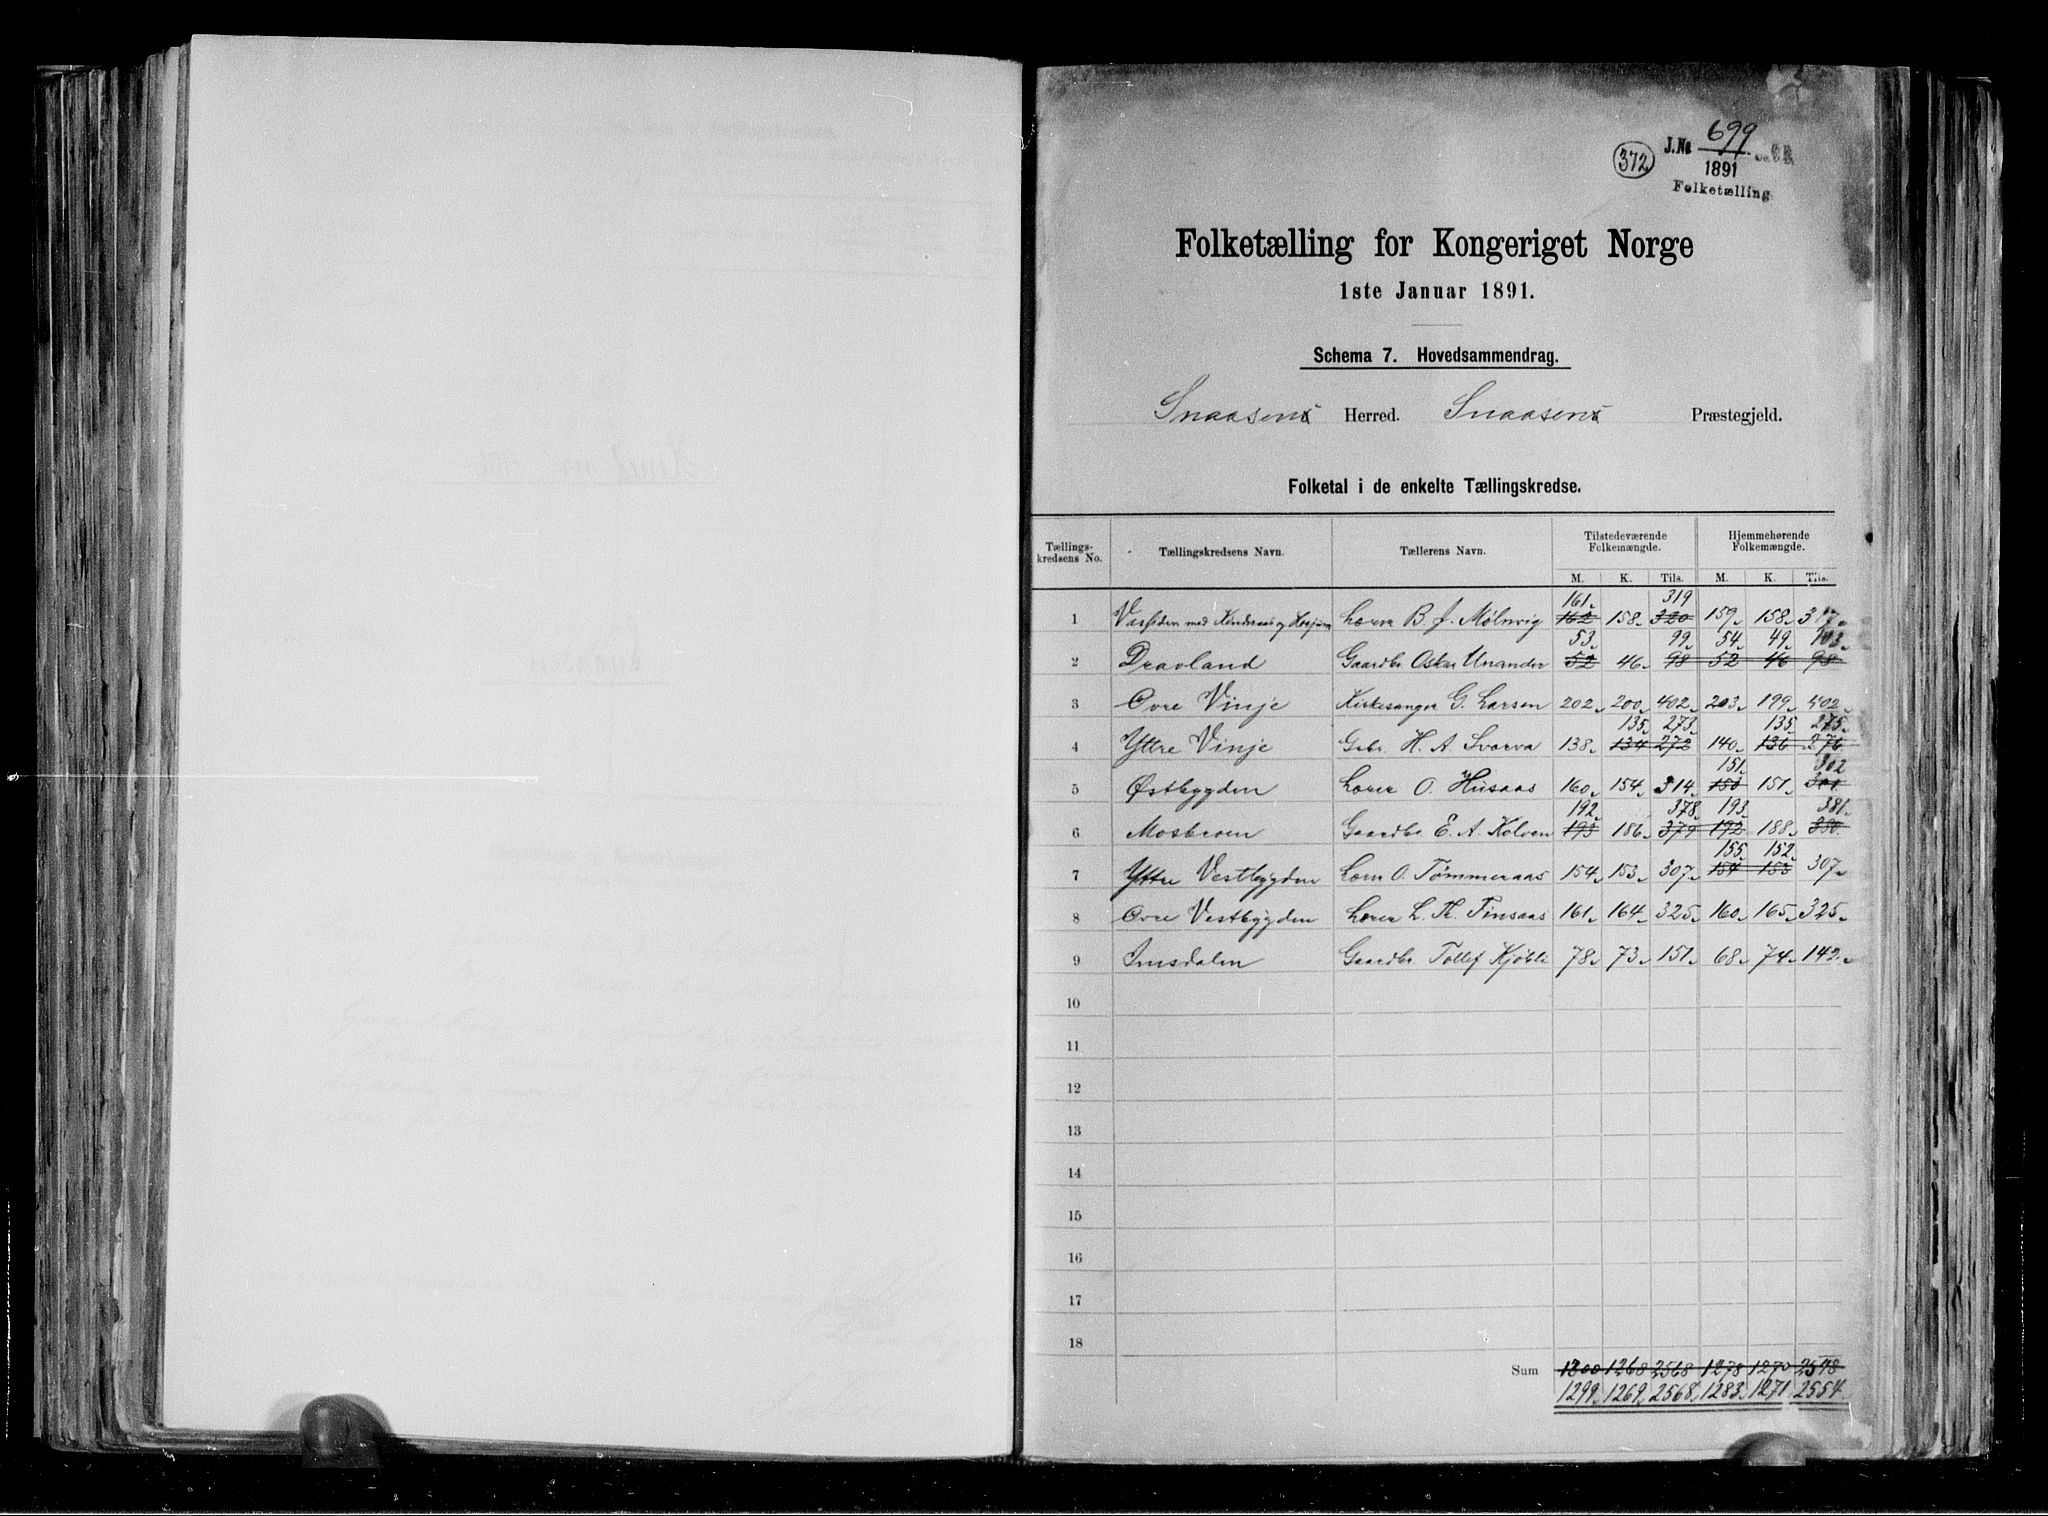 372
J.No 699
1891
Folketælling
Folketælling for Kongeriget Norge
1ste Januar 1891.
Schema 7. Hovedsammendrag.
Snaasen Herred. Snaasen Præstegjeld.
Folketal i de enkelte Tællingskredse.
Tællings-kredsens No. Tællingskredsens Navn. Tællerens Navn. Tilstedeværende Folkemængde. Hjemmehørende Folkemængde.
M. K. Tils. M. K. Tils.
161 319
1 med og Lærer B. J. Mølnvig 162 158 320 159 158 317
53 99 54 49 103
2 Dravland Gaardbr Oskar Unander 52 46 98 52 46 98
3 Ovre Vinje Kirkesanger G. Larsen 202 200 402 203 199 402
135 273 135 275
4 Yttre Vinje Gbr. H. A. Svarva 138 134 272 140 136 276
151 302
5 Østbygden Lærer O. Husaas 160 154 314 150 151 301
192 378 193 381
6 Mosbroen Gaardbr E. A. Kolven 193 186 379 192 188 380
155 152
7 Yttre Vestbygden Lærer O. Tømmeraas 154 153 307 154 153 307
8 Ovre Vestbygden Lærer L. Th. Finsaas 161 164 325 160 165 325
9 Imsdalen Gaardbr Tollef Kjøbli 78 73 151 68 74 142
10
11
12
13
14
15
16
17
18
Sum 1300 1268 2568 1278 1270 2548
1299 1269 2568 1283 1271 2554